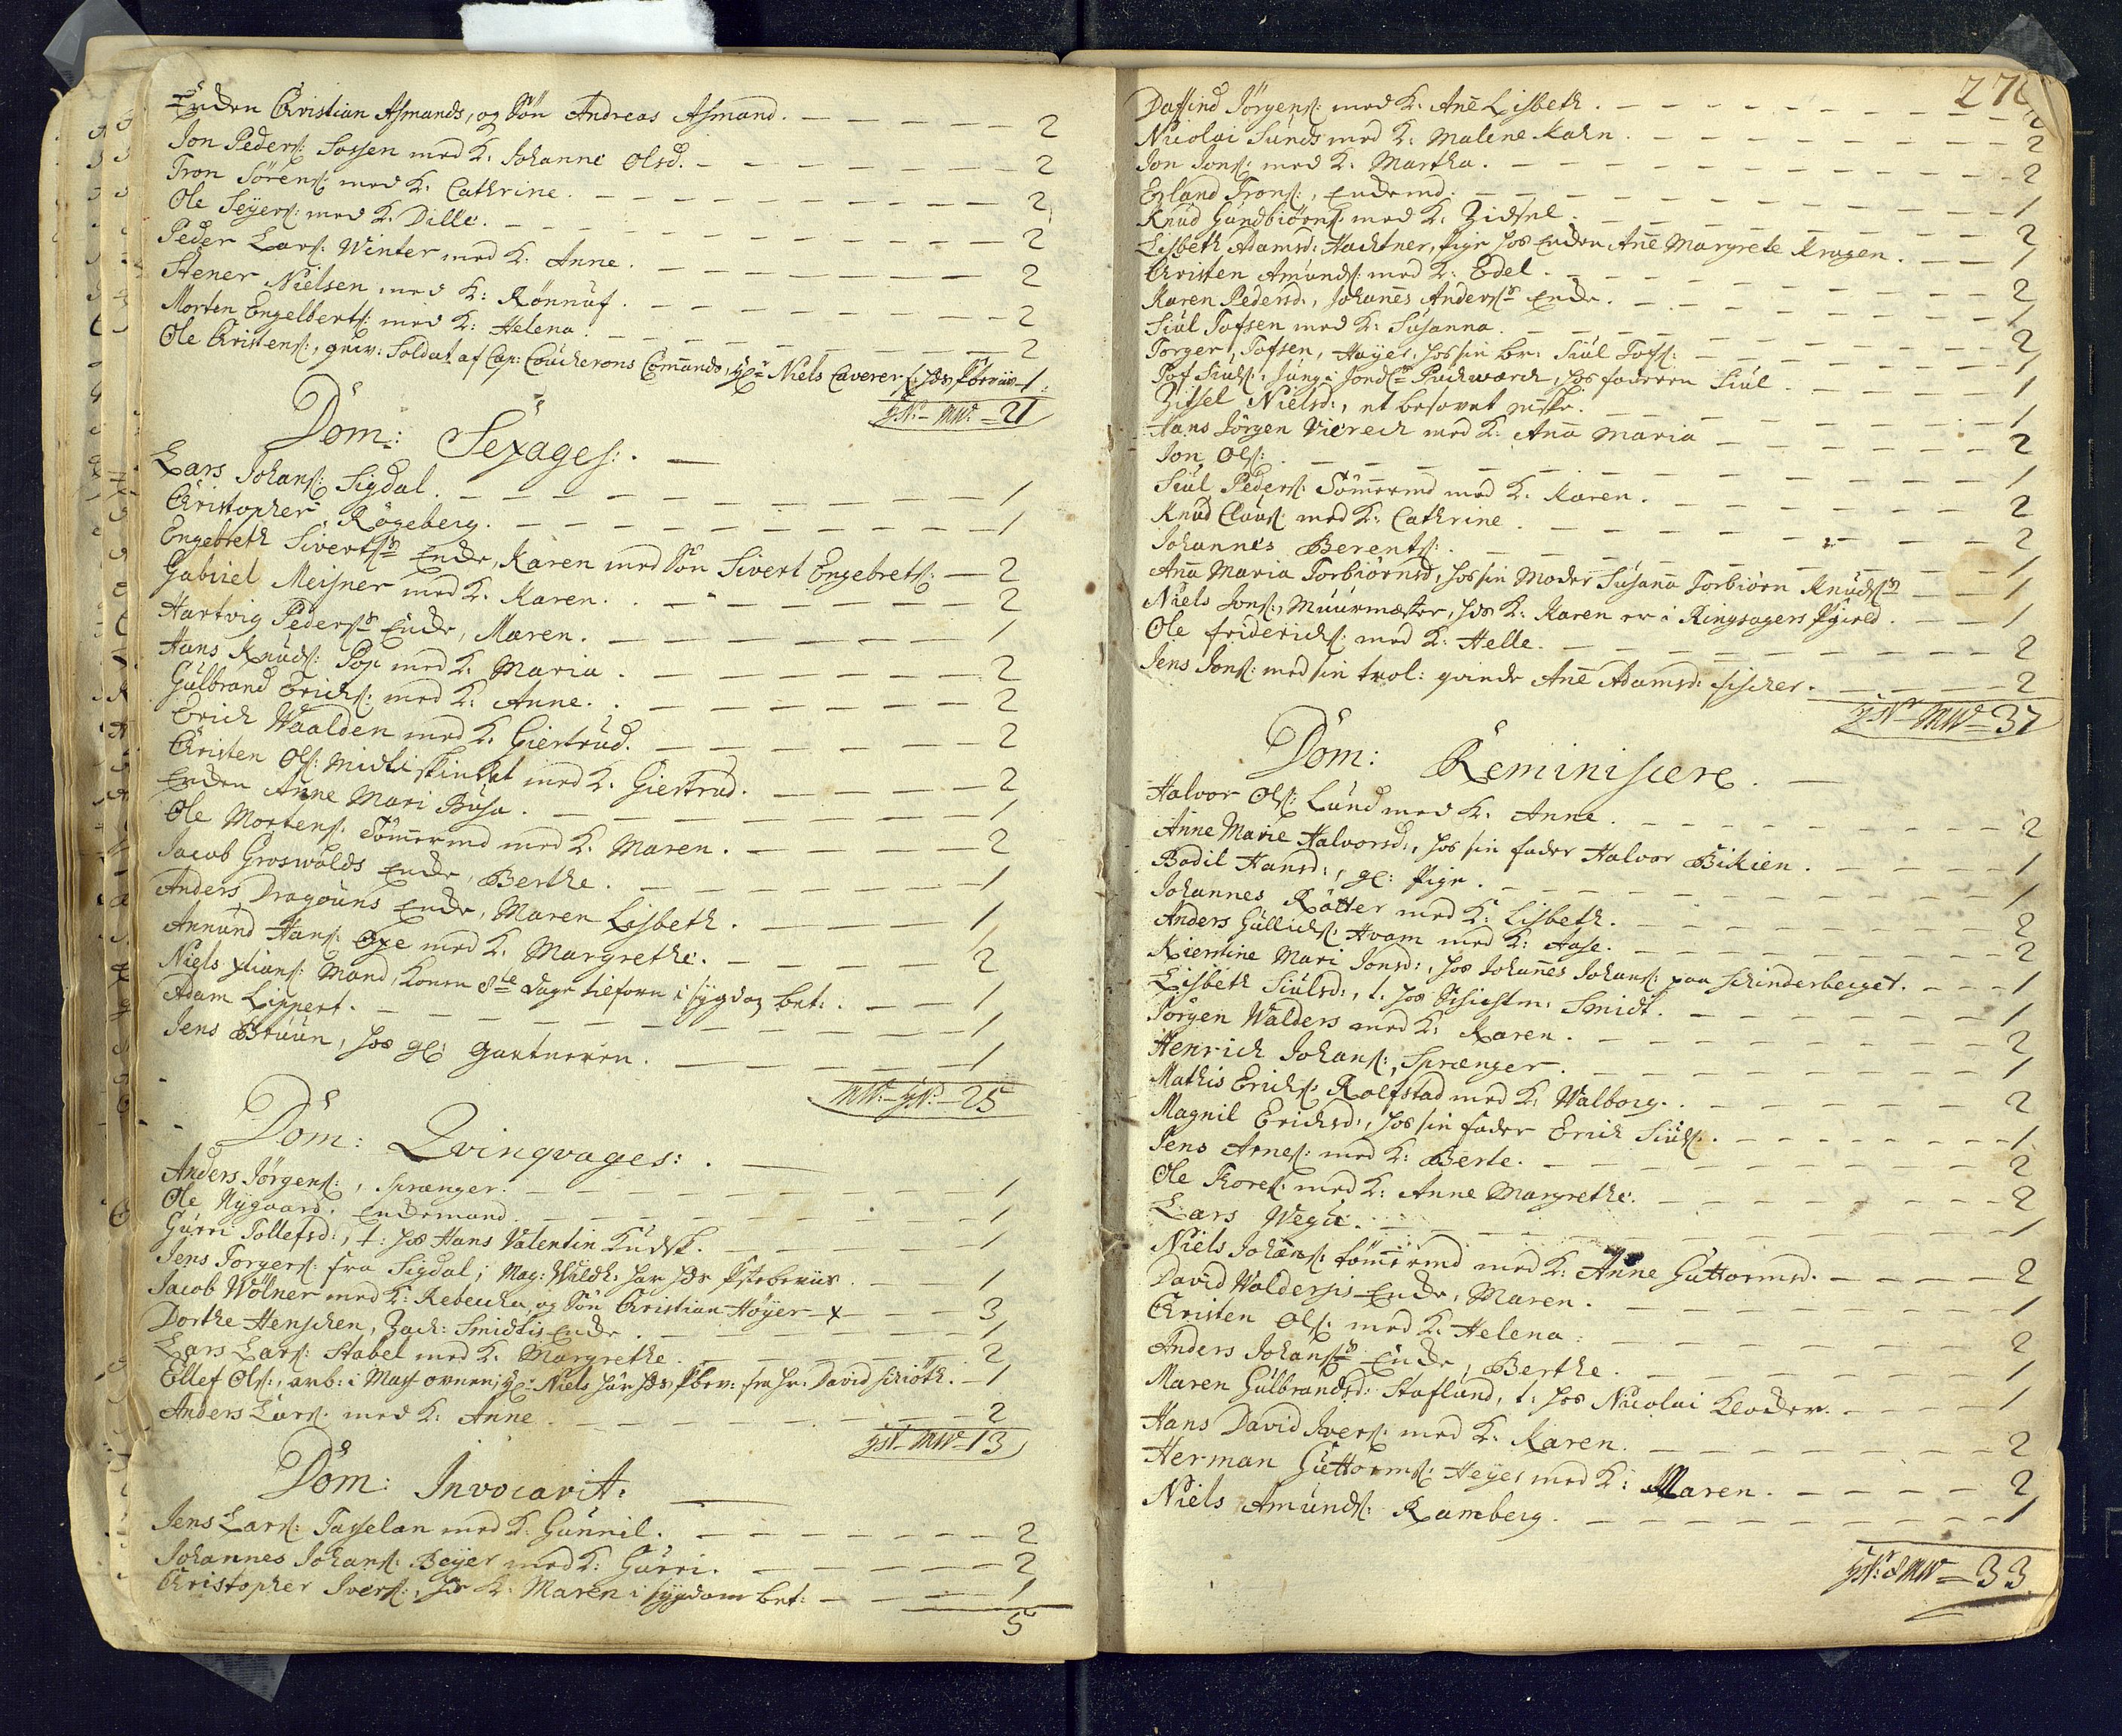 Enken Christian Asmands, og Sön Andreas Asmand. — 2
Jon Peders: Fossen med K: Johanne Olsd. — 2
Tron Sörens: med K: Cathrine. — 2
Ole Seyers: med K: Dille. — 2
Peder Lars: Winter med K: Anne. — 2
Stener Nielsen med K: Rönnuf. — 2
Morten Engelberts: med K: Helena. — 2
Ole Christens:, Soldat af Cap: Coucherons Comando, Niels Caverer — 1
21
Dom: Sexages:
Lars Johans: Sigdal. — 1
Christopher Rögeberg. — 1
Engebreth Siverts: Enke, Karen med Sön Sivert Engebrets: — 2
Gabriel Meisner med K: Karen. — 2
Hartvig Peders: Enke, Maren. — 1
Hans Knuds: Pop med K: Maria. — 2
Gulbrand Erichs: med K: Anne. — 2
Erich Waalden med K: Giertrud. — 2
Christen Ols: med K: Giertrud. — 2
Enken Anne Mari Busa. — 1
Ole Mortens: Tömermd med K: Maren. — 2
Jacob Groswolds Enke, Berthe. — 1
Anders Dragouns Enke, Maren Lisbeth. — 1
Annund Hans: Oxe med K: Margrethe. — 2
Niels xtians: Mand, Konen 8te dage tilforn i sygdom bet: — 1
Adam Lippert. — 1
Jens Bruun, hos gl: gartneren. — 1
25
Dom: Qvinqvages:
Anders Jörgens:, Sprænger. — 1
Ole Nygaard, Enkemand. — 1
Gurri Tollefsd:, t: hos Hans Valentin Kudsk. — 1
Jens Torgers: fra Sigdal; Mag: Wildh: har — 1
Jacob Wölner med K: Rebecka, og Sön Christian Höyer x — 3
Dorthe Henschen, Zach: Smidtis Enke — 1
Lars Lars: Stabel med K: Margrethe. — 2
Ellef Ols:, arb: i Mas ovnen; Niels har fra hr: David — 1
Anders Lars: med K: Anne. — 2
13
Dom: Invocavit.
Jens Lars: Tasselan med K: Gunnil. — 2
Johannes Johans: Beyer med K: Gurri. — 2
Christopher Ivers:, K: Maren i sygdom bet: — 1
5
Daffind Jörgens: med K: Ane Lisbeth. — 2
Nicolai Sunds med K: Malene Kahn. — 2
Jon Jons: med K: Martha. — 2
Erland Trons:, Enkemd. — 1
Knud Gundbiörns: med K: Zidsel. — 2
Lisbeth Adamsd: Hachtner, Pige hos Enken Ane Margrete Kragen. — 1
Christen Amunds: med K: Edel. — 2
Karen Pedersd:, Johanes Anders: Enke. — 1
Siul Tofsen med K: Susanna. — 2
Torger Tofsen, Höyer, hos sin br: Siul Tofs: — 1
Tof Siuls:, Jung i Puchwærch, hos faderen Siul — 1
Zissel Nielsd:, et besovet mske. — 1
Hans Jörgen Viereck med K: Ana Maria — 2
Jon Ols: — 1
Siul Peders: Tömermd med K: Karen. — 2
Knud Claus: med K: Cathrine. — 2
Johannes Berents: — 1
Ana Maria Torbiörnsd, hos sin Moder Susana Torbiörn Knuds: — 1
Niels Jons:, Muurmæster, K: Karen er i Ringsagers Pgield. — 1
Ole friderichs: med K: Helle. — 2
Jens Jons: med sin trol: qvinde Ane Adamsd: fischer. — 2
37
Dom: Reminiscere.
Halvor Ols: Lund med K: Anne. — 2
Anne Marie Halvorsd:, hos sin fader Halvor Bikien. — 1
Bodil Hansd:, gl: Pige. — 1
Johannes Rötter med K: Lisbeth. — 2
Anders Gullichs: Hvam med K: Aase. — 2
Kierstine Mari Jonsd:, hos Johanes Johans: paa Schinderberget. — 1
Lisbeth Siulsd:, t: hos Smidt. — 1
Jörgen Walders med K: Karen. — 2
Henrich Johans:, Sprænger. — 1
Mathis Erichs: Rolfstad med K: Walborg. — 2
Magnil Erichsd:, hos sin fader Erich Siuls: — 1
Jens Arnes: med K: Berte. — 2
Ole Thores: med K: Anne Margrethe. — 2
Lars Wegu. — 1
Niels Johans: tömermd med K: Anne Guttormsd. — 2
David Waldersis Enke, Maren. — 1
Christen Ols: med K: Helena: — 2
Anders Johans: Enke, Berthe. — 1
Maren Gulbrandsd: Staflund, t: hos Nicolai Kloder. — 1
Hans David Ivers: med K: Karen. — 2
Herman Guttorms: Heyer med K: Maren. — 2
Niels Amunds: Ramberg. — 1
33